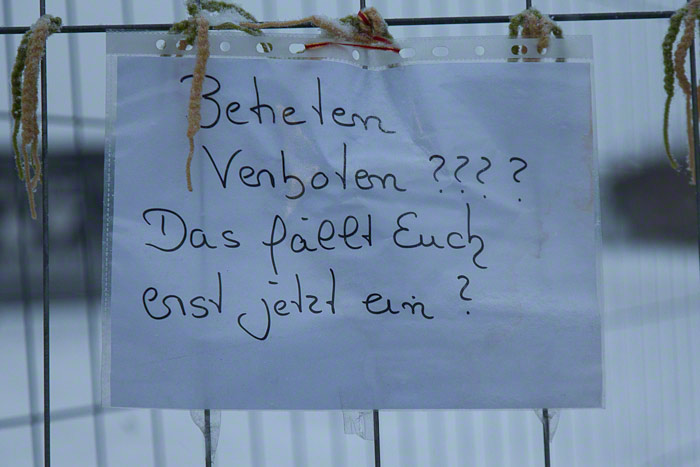 Betretem
Verboten ????
Das fällt Euch
erst jetzt ein ?